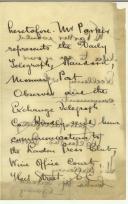 heretofore. Mr Parker
represents the Daily
Telegraph, Standard,
Morning Post
Observer and the
Exchange Telegraph
Co. Kindly send
communications to
the London Press Club,
Wine Office Court
Fleet Street